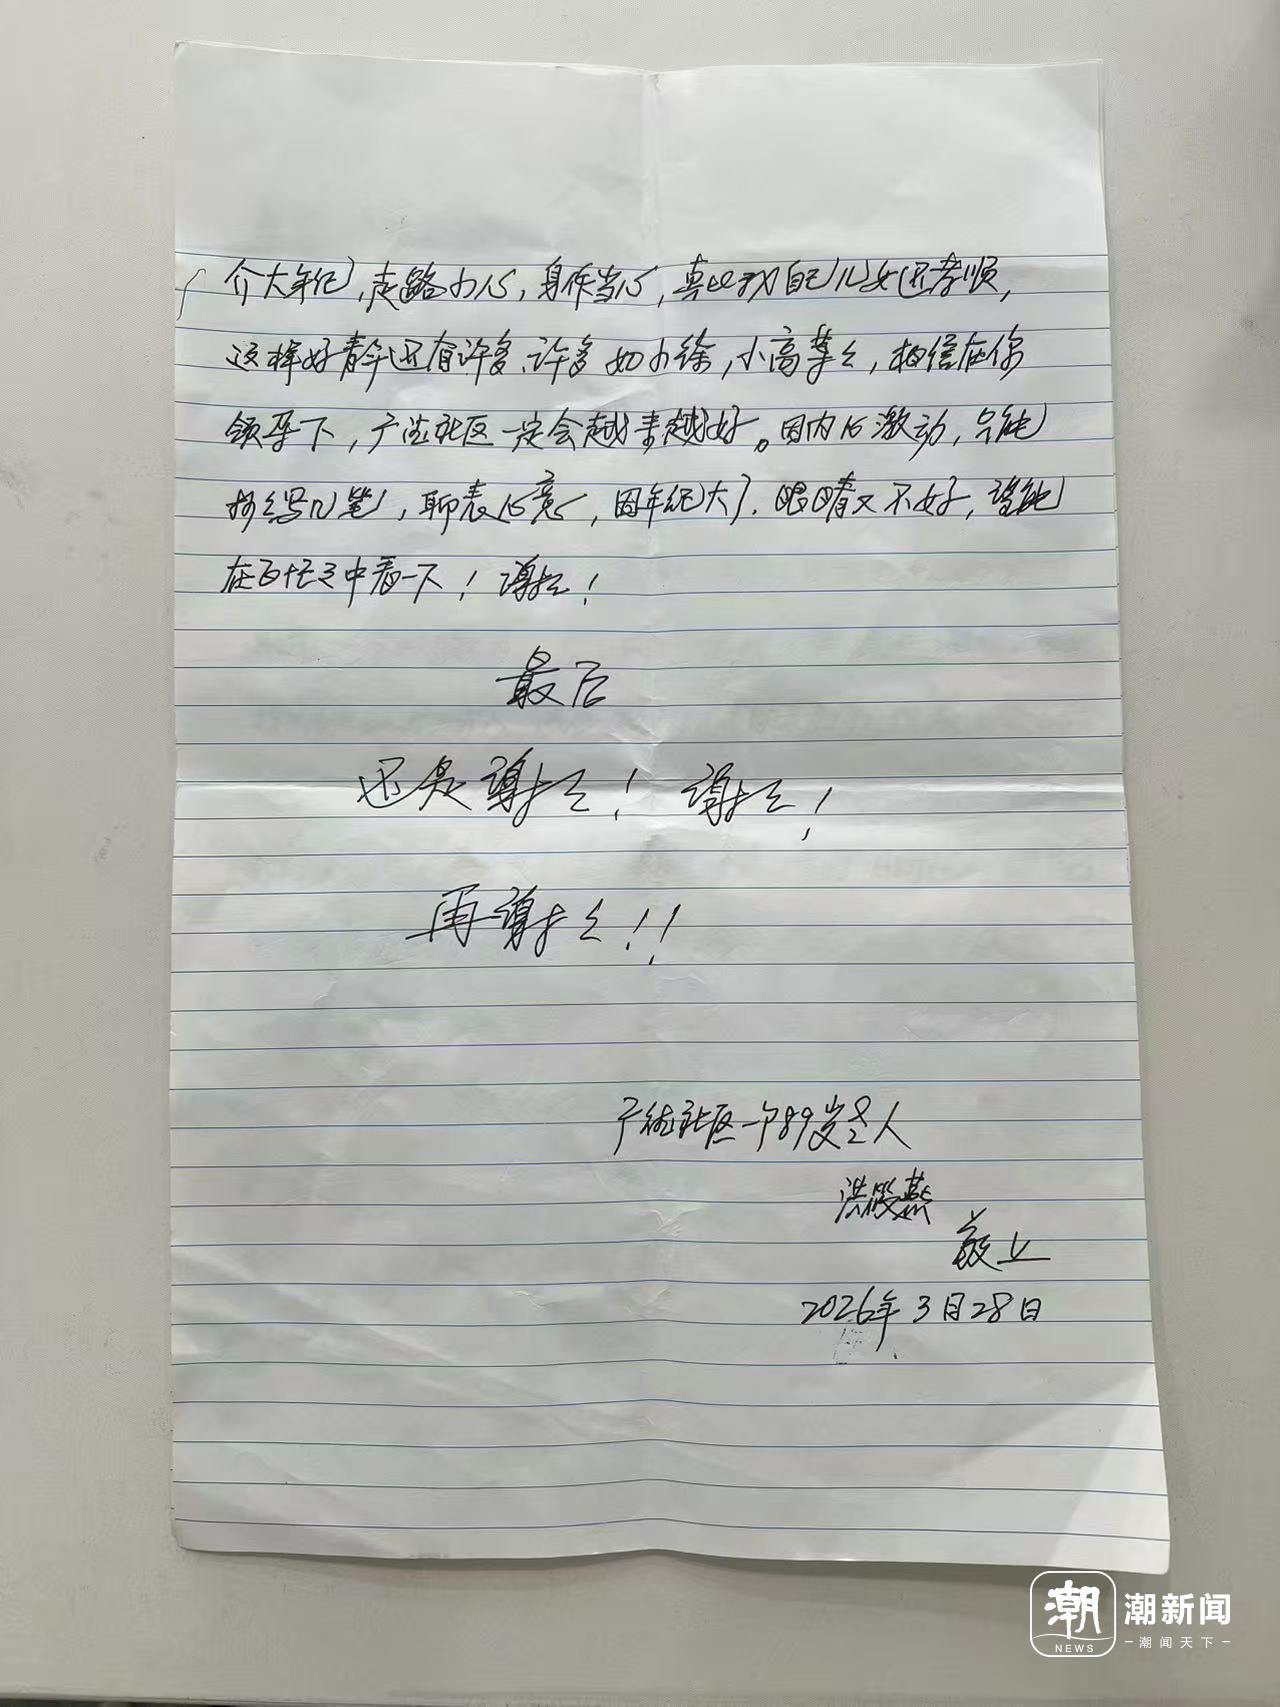 介大年纪,走路小心,身体当心,真比我自己儿女还孝顺,
这样好青年还有许多、许多如小徐,小高等々,相信在你
领导下,社区一定会越来越好。因内心激动,只能
写几笔,聊表心意,因年纪大了.眼睛又不好,请能
在百忙之中看一下!谢々!
最后
还是谢々!谢々!
再谢々!!
社区一个89岁老人
洪筱燕
敬上
2026年3月28日
潮 潮新闻
NEWS 潮闻天下